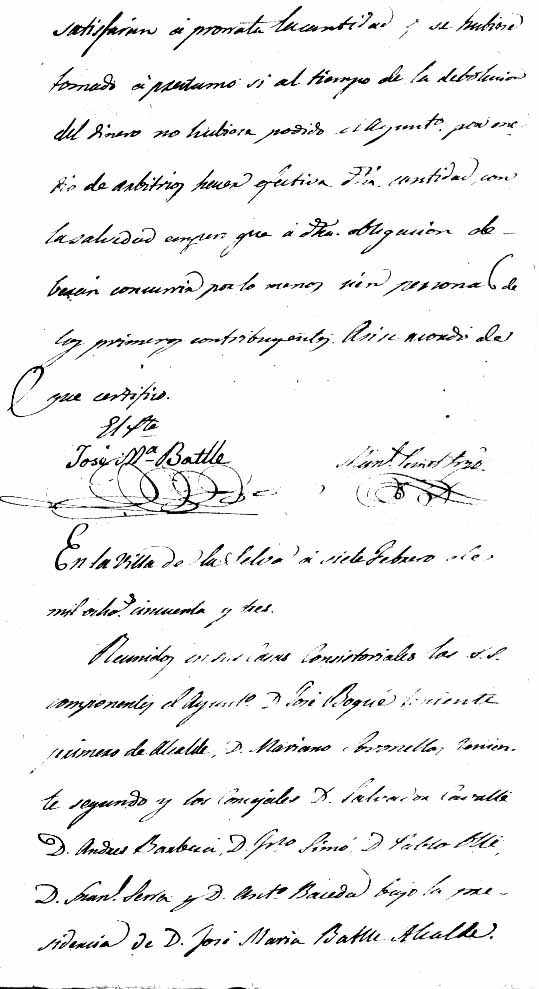 satisfarian á prorrata la cantidad q. se hubiere
tomado á prestamo si al tiempo de la debolucion
del dinero no hubiese podido el Ayunto. por me-
dio de arbitrios hacer efectiva dha. cantidad, con
la salvedad empero que á dha. obligacion de-
beran concurrir por lo menos cien personas de
los primeros contribuyentes. Asi se acordó de
que certifico.
El Pte
José Ma. Batlle
En la Villa de la Selva á siete Febrero de
mil ocho.s cincuenta y tres.
Reunidos en sus Casas Consistoriales los S.S.
componentes el Ayunto. D. José Bogué teniente
primero de Alcalde, D. Mariano tenien-
te segundo y los Concejales D. Salvador Cavallé
D. Andres D. Simó, D. Pablo Ollé,
D. Fran.o Serra y D. Anto. bajo la pre-
sidencia de D. José Maria Batlle Alcalde.